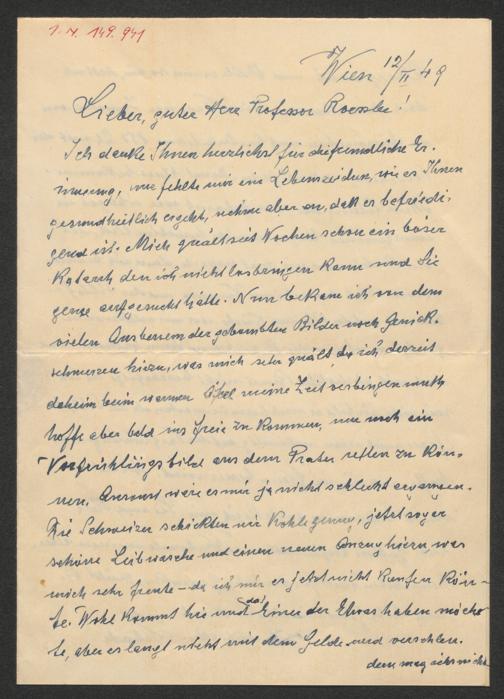 1. N. 149.941
Wien 12/II 49
Lieber, guter Herr Professor Roessler!
Ich danke Ihnen herzlichst für die freundliche Er-
innerung, nur fehlte mir ein Lebenszeichen, wie es Ihnen
gesundheitlich ergeht, nehme aber an, daß es befriedi-
gend ist. Mich quält seit Wochen schon ein böser
Katarrh, den ich nicht losbringen kann und Sie
gerne aufgesucht hätte. Nun bekam ich von dem
vielen Ausbessern der gebombten Bilder noch Genick-
schmerzen hiezu, was mich sehr quält da ich derzeit
daheim beim warmen Ofen meine Zeit verbringen muß
hoffe aber bald ins Freie zu kommen, um noch ein
Vorfrühlingsbild aus dem Prater retten zu kön-
nen. Ansonst wäre es mir ja nicht schlecht ergangen.
Die Schweizer schickten mir Kohle genug, jetzt sogar
schöne Leibwäsche und einen neuen Anzug hiezu, was
mich sehr freute – da ich mir es jetzt nicht kaufen kön-
te. Wohl kommt hie und da Einer der Etwas haben möch-
te, aber es langt nicht mit dem Gelde und verschleu-
dern mag ichs nicht